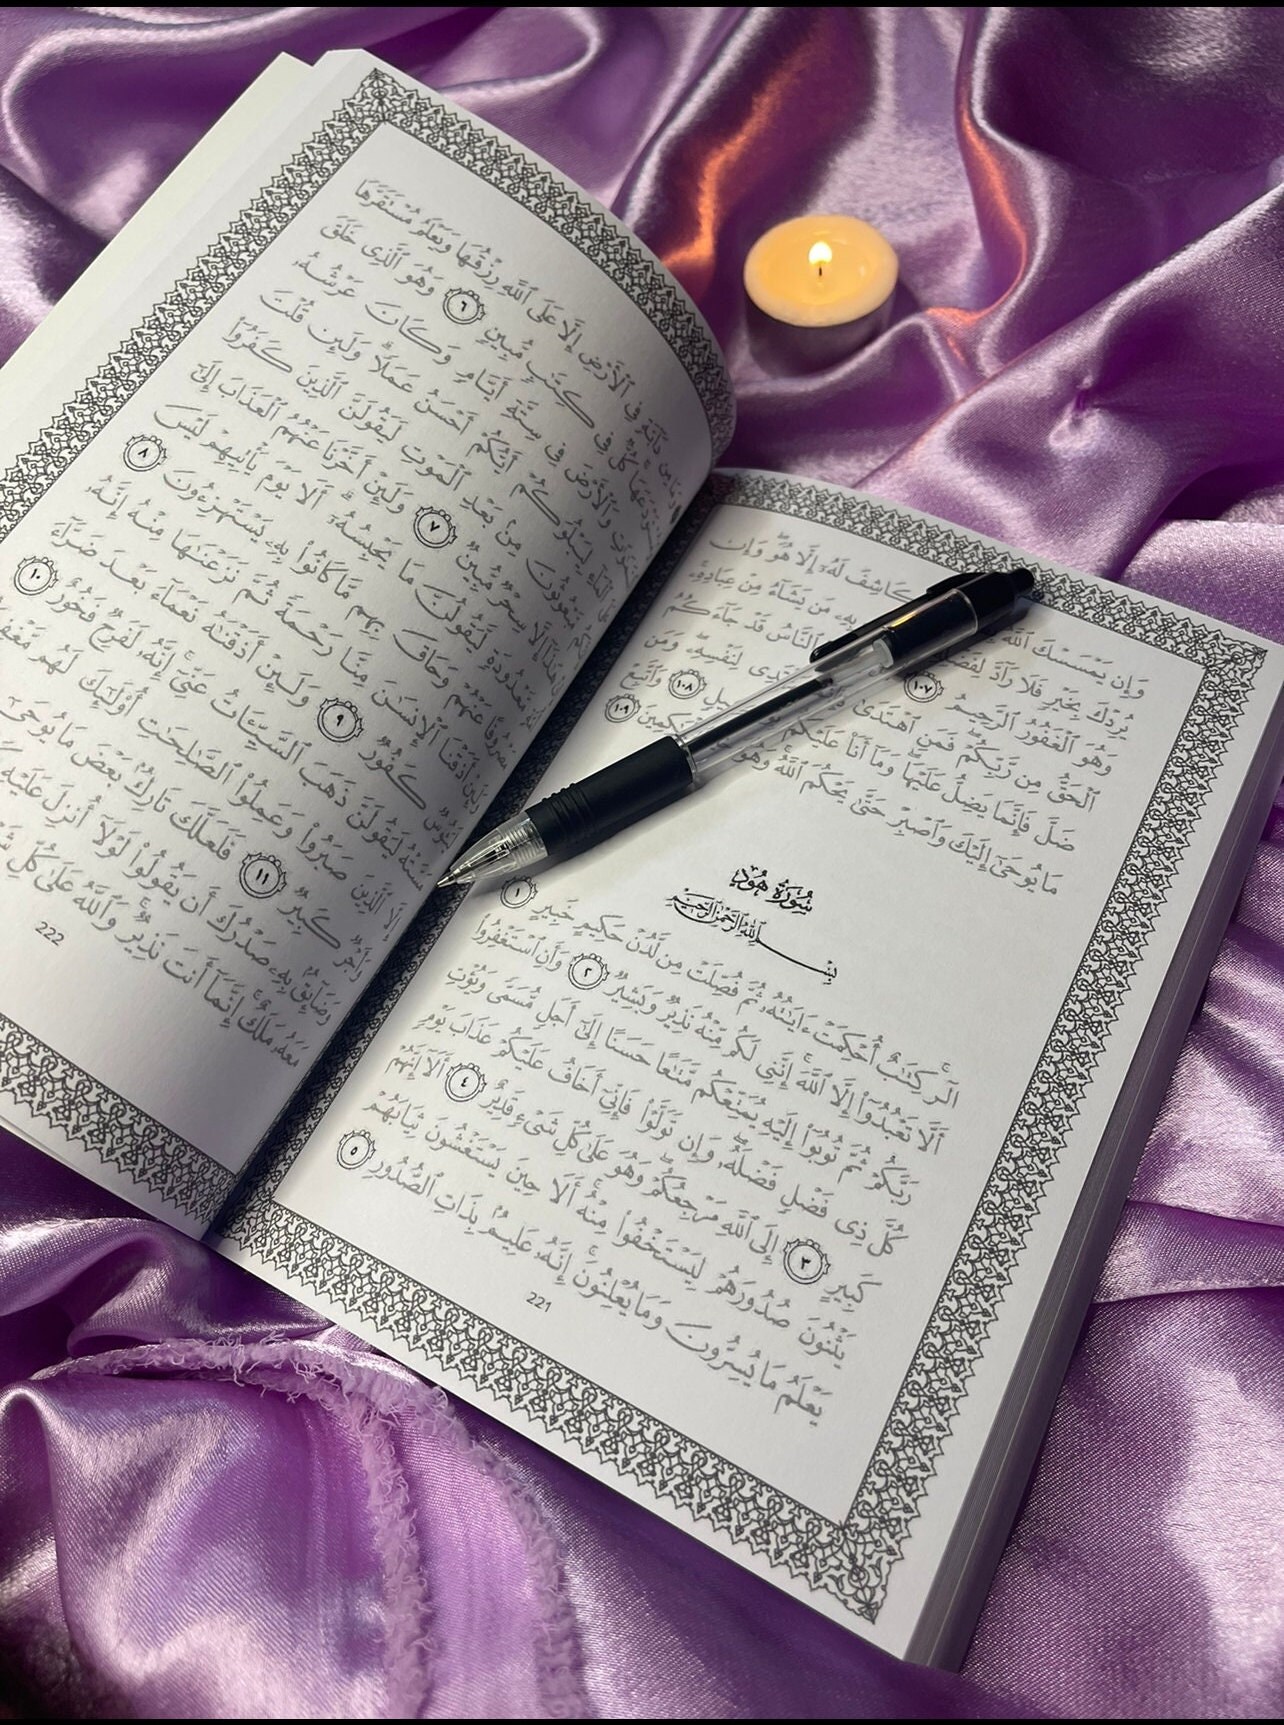 وَإِن يَمْسَسْكَ ٱللَّهُ كَاشِفَ لَهُۥٓ إِلَّا هُوَ ۖ وَإِن
يُرِدْكَ بِخَيْرٍ فَلَا رَآدَّ لِفَضْلِهِۦ بِهِۦ مَن يَشَآءُ مِنْ عِبَادِهِۦ ۚ
وَهُوَ ٱلْغَفُورُ ٱلرَّحِيمُ ١٠٧ ٱلنَّاسُ قَدْ جَآءَكُمُ
ٱلْحَقُّ مِن رَّبِّكُمْ ۖ فَمَنِ ٱهْتَدَىٰ يَهْتَدِى لِنَفْسِهِۦ ۖ وَمَن
ضَلَّ فَإِنَّمَا يَضِلُّ عَلَيْهَا ۖ وَمَآ أَنَا۠ عَلَيْكُم ١٠٨ وَٱتَّبِعْ
مَا يُوحَىٰٓ إِلَيْكَ وَٱصْبِرْ حَتَّىٰ يَحْكُمَ ٱللَّهُ ۚ وَهُوَ ١٠٩
سُورَةُ هُودٍ
بِسْمِ ٱللَّهِ ٱلرَّحْمَٰنِ ٱلرَّحِيمِ
الٓر ۚ كِتَٰبٌ أُحْكِمَتْ ءَايَٰتُهُۥ ثُمَّ فُصِّلَتْ مِن لَّدُنْ حَكِيمٍ خَبِيرٍ ١
أَلَّا تَعْبُدُوٓا۟ إِلَّا ٱللَّهَ ۚ إِنَّنِى لَكُم مِّنْهُ نَذِيرٌ وَبَشِيرٌ ٢ وَأَنِ ٱسْتَغْفِرُوا۟
رَبَّكُمْ ثُمَّ تُوبُوٓا۟ إِلَيْهِ يُمَتِّعْكُم مَّتَٰعًا حَسَنًا إِلَىٰٓ أَجَلٍ مُّسَمًّى وَيُؤْتِ
كُلَّ ذِى فَضْلٍ فَضْلَهُۥ ۖ وَإِن تَوَلَّوْا۟ فَإِنِّىٓ أَخَافُ عَلَيْكُمْ عَذَابَ يَوْمٍ
كَبِيرٍ ٣ إِلَى ٱللَّهِ مَرْجِعُكُمْ ۖ وَهُوَ عَلَىٰ كُلِّ شَىْءٍ قَدِيرٌ ٤ أَلَآ إِنَّهُمْ
يَثْنُونَ صُدُورَهُمْ لِيَسْتَخْفُوا۟ مِنْهُ ۚ أَلَا حِينَ يَسْتَغْشُونَ ثِيَابَهُمْ
يَعْلَمُ مَا يُسِرُّونَ وَمَا يُعْلِنُونَ ۚ إِنَّهُۥ عَلِيمٌۢ بِذَاتِ ٱلصُّدُورِ ٥
221
دَآبَّةٍ فِى ٱلْأَرْضِ إِلَّا عَلَى ٱللَّهِ رِزْقُهَا وَيَعْلَمُ مُسْتَقَرَّهَا
كُلٌّ فِى كِتَٰبٍ مُّبِينٍ ٦ وَهُوَ ٱلَّذِى خَلَقَ
وَٱلْأَرْضَ فِى سِتَّةِ أَيَّامٍ وَكَانَ عَرْشُهُۥ
لِيَبْلُوَكُمْ أَيُّكُمْ أَحْسَنُ عَمَلًا ۗ وَلَئِن قُلْتَ
مَّبْعُوثُونَ مِنۢ بَعْدِ ٱلْمَوْتِ لَيَقُولَنَّ ٱلَّذِينَ كَفَرُوٓا۟
إِلَّا سِحْرٌ مُّبِينٌ ٧ وَلَئِنْ أَخَّرْنَا عَنْهُمُ ٱلْعَذَابَ إِلَىٰٓ
مَّعْدُودَةٍ لَّيَقُولُنَّ مَا يَحْبِسُهُۥٓ ۗ أَلَا يَوْمَ يَأْتِيهِمْ لَيْسَ
مَصْرُوفًا عَنْهُمْ وَحَاقَ بِهِم مَّا كَانُوا۟ بِهِۦ يَسْتَهْزِءُونَ ٨
وَلَئِنْ أَذَقْنَا ٱلْإِنسَٰنَ مِنَّا رَحْمَةً ثُمَّ نَزَعْنَٰهَا مِنْهُ إِنَّهُۥ
لَيَـُٔوسٌ كَفُورٌ ٩ وَلَئِنْ أَذَقْنَٰهُ نَعْمَآءَ بَعْدَ ضَرَّآءَ
مَسَّتْهُ لَيَقُولَنَّ ذَهَبَ ٱلسَّيِّـَٔاتُ عَنِّىٓ ۚ إِنَّهُۥ لَفَرِحٌ فَخُورٌ ١٠
إِلَّا ٱلَّذِينَ صَبَرُوا۟ وَعَمِلُوا۟ ٱلصَّٰلِحَٰتِ أُو۟لَٰٓئِكَ لَهُم
وَأَجْرٌ كَبِيرٌ ١١ فَلَعَلَّكَ تَارِكٌۢ بَعْضَ مَا يُوحَىٰٓ
وَضَآئِقٌۢ بِهِۦ صَدْرُكَ أَن يَقُولُوا۟ لَوْلَآ أُنزِلَ عَلَيْهِ
مَعَهُۥ مَلَكٌ ۚ إِنَّمَآ أَنتَ نَذِيرٌ ۚ وَٱللَّهُ عَلَىٰ كُلِّ
222